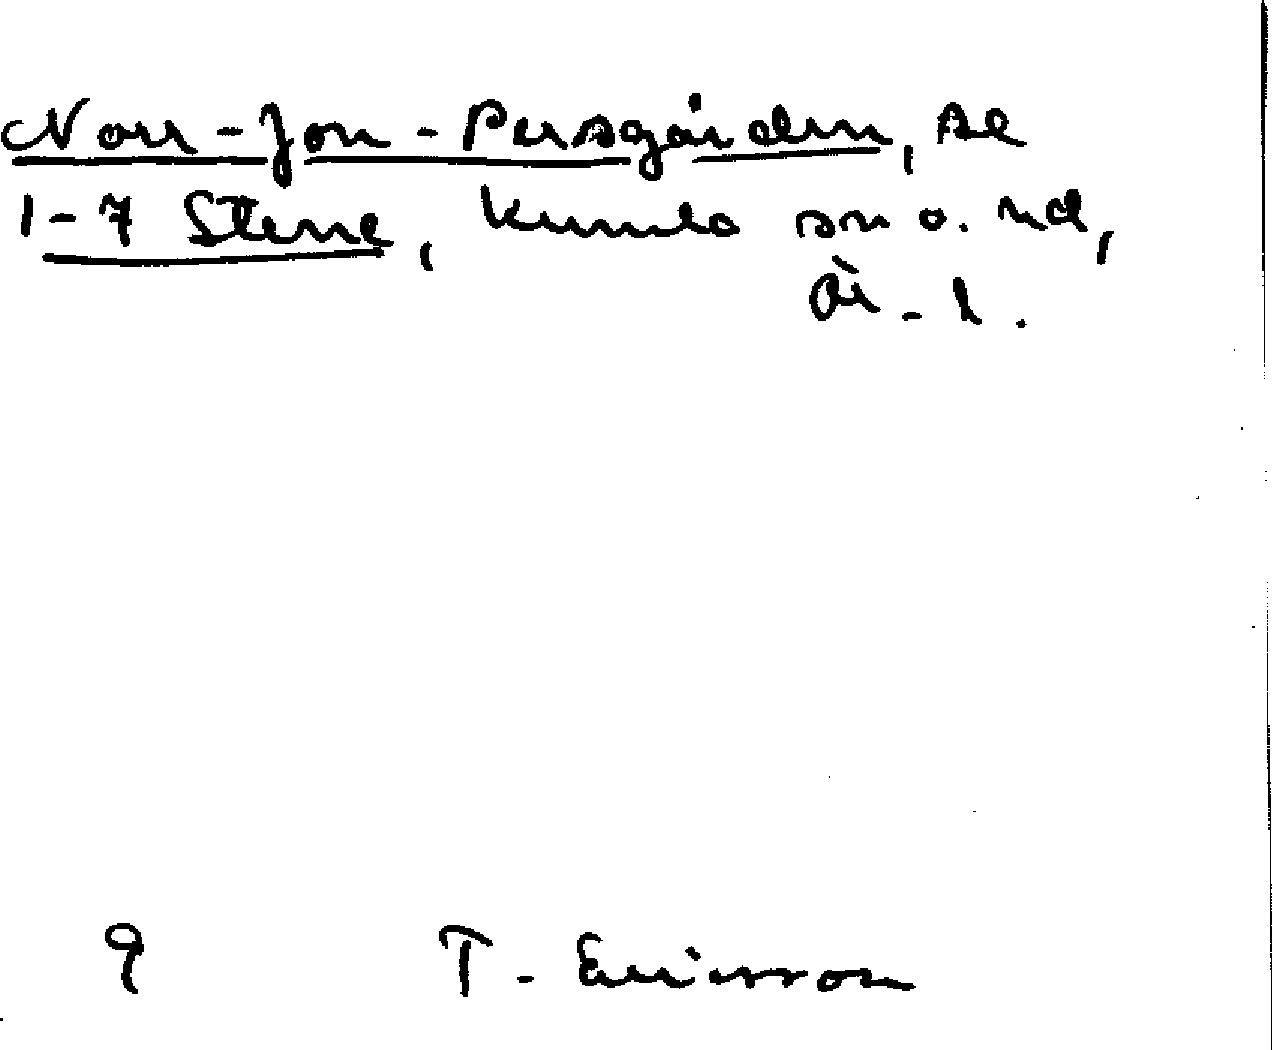 Norr-Jon-Persgården, se
1-7 Stene, Kumla sn o. hd,
Ör. l.
9 T. Ericsson